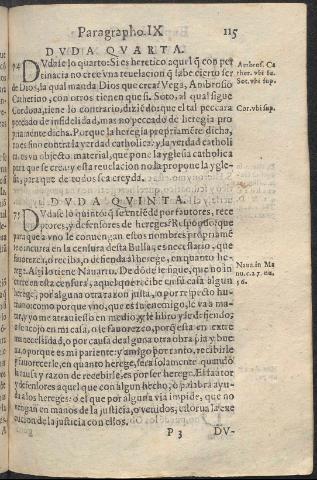 Paragrapho.IX 115
DVDA QVARTA.
74 DVdase lo quarto: Si es heretico aquel q̃ con per
tinacia no cree vna reuelacion q̃ sabe cierto ser
de Dios, la qual manda Dios que crea? Vega, Ambrosio
Catherino, con otros tienen que si. Soto, al qual sigue
Cordoua, tiene lo contrario, diziẽdo: que el tal peccara
peccado de infidelidad, mas no peccado de heregia pro
priamente dicha. Porque la heregia propriamẽte dicha,
no es sino contra la verdad catholica: y la verdad catholi
ca es vn objecto material, que pone la yglesia catholica
para que se crea: y essa reuelacion no la propone la ygle-
sia, para que de todos sea creyda.
Ambros. Ca
ther. vbi su.
Sot. vbi sup.
Cor. vbi sup.
DVDA QVINTA.
75 DVdase lo quinto: q̃ se entiẽde por fautores, rece
ptores, y defensores de hereges? Respõdo: que
para que a vno le conuengan estos nombres propriamẽ
te, e incurra en la censura desta Bulla, es necessario, que
fauorezca, o reciba, o defienda al herege, en quanto he-
rege. Assi lo tiene Nauarro. De dõde se sigue, que no in
curre en esta censura, aquel que recibe en su casa algun
herege, por alguna otra razon justa, o por respecto hu-
mano: como porque vno, que es su enemigo, le va a ma-
tar, y yo me atrauiesso en medio, y le libro y le defiendo:
o le acojo en mi casa, o le fauorezco, porq̃ esta en extre
ma necessidad, o por causa de alguna otra obra pia y bue
na, o porque es mi pariente: y amigo: por tanto, recibirle
y fauorecerle, en quanto herege, sera solamente quando
la causa y razon de recebirle, es por ser herege. Es fautor
y defensores aquel que con algun hecho, o palabra ayu-
da a los hereges: o el que por alguna via impide, que no
vengan en manos de la justicia, o venidos, estorua la exe
cucion de la justicia con ellos.
Naua. in Ma
nu. c. 27. nu.
56.
P 3 DV-